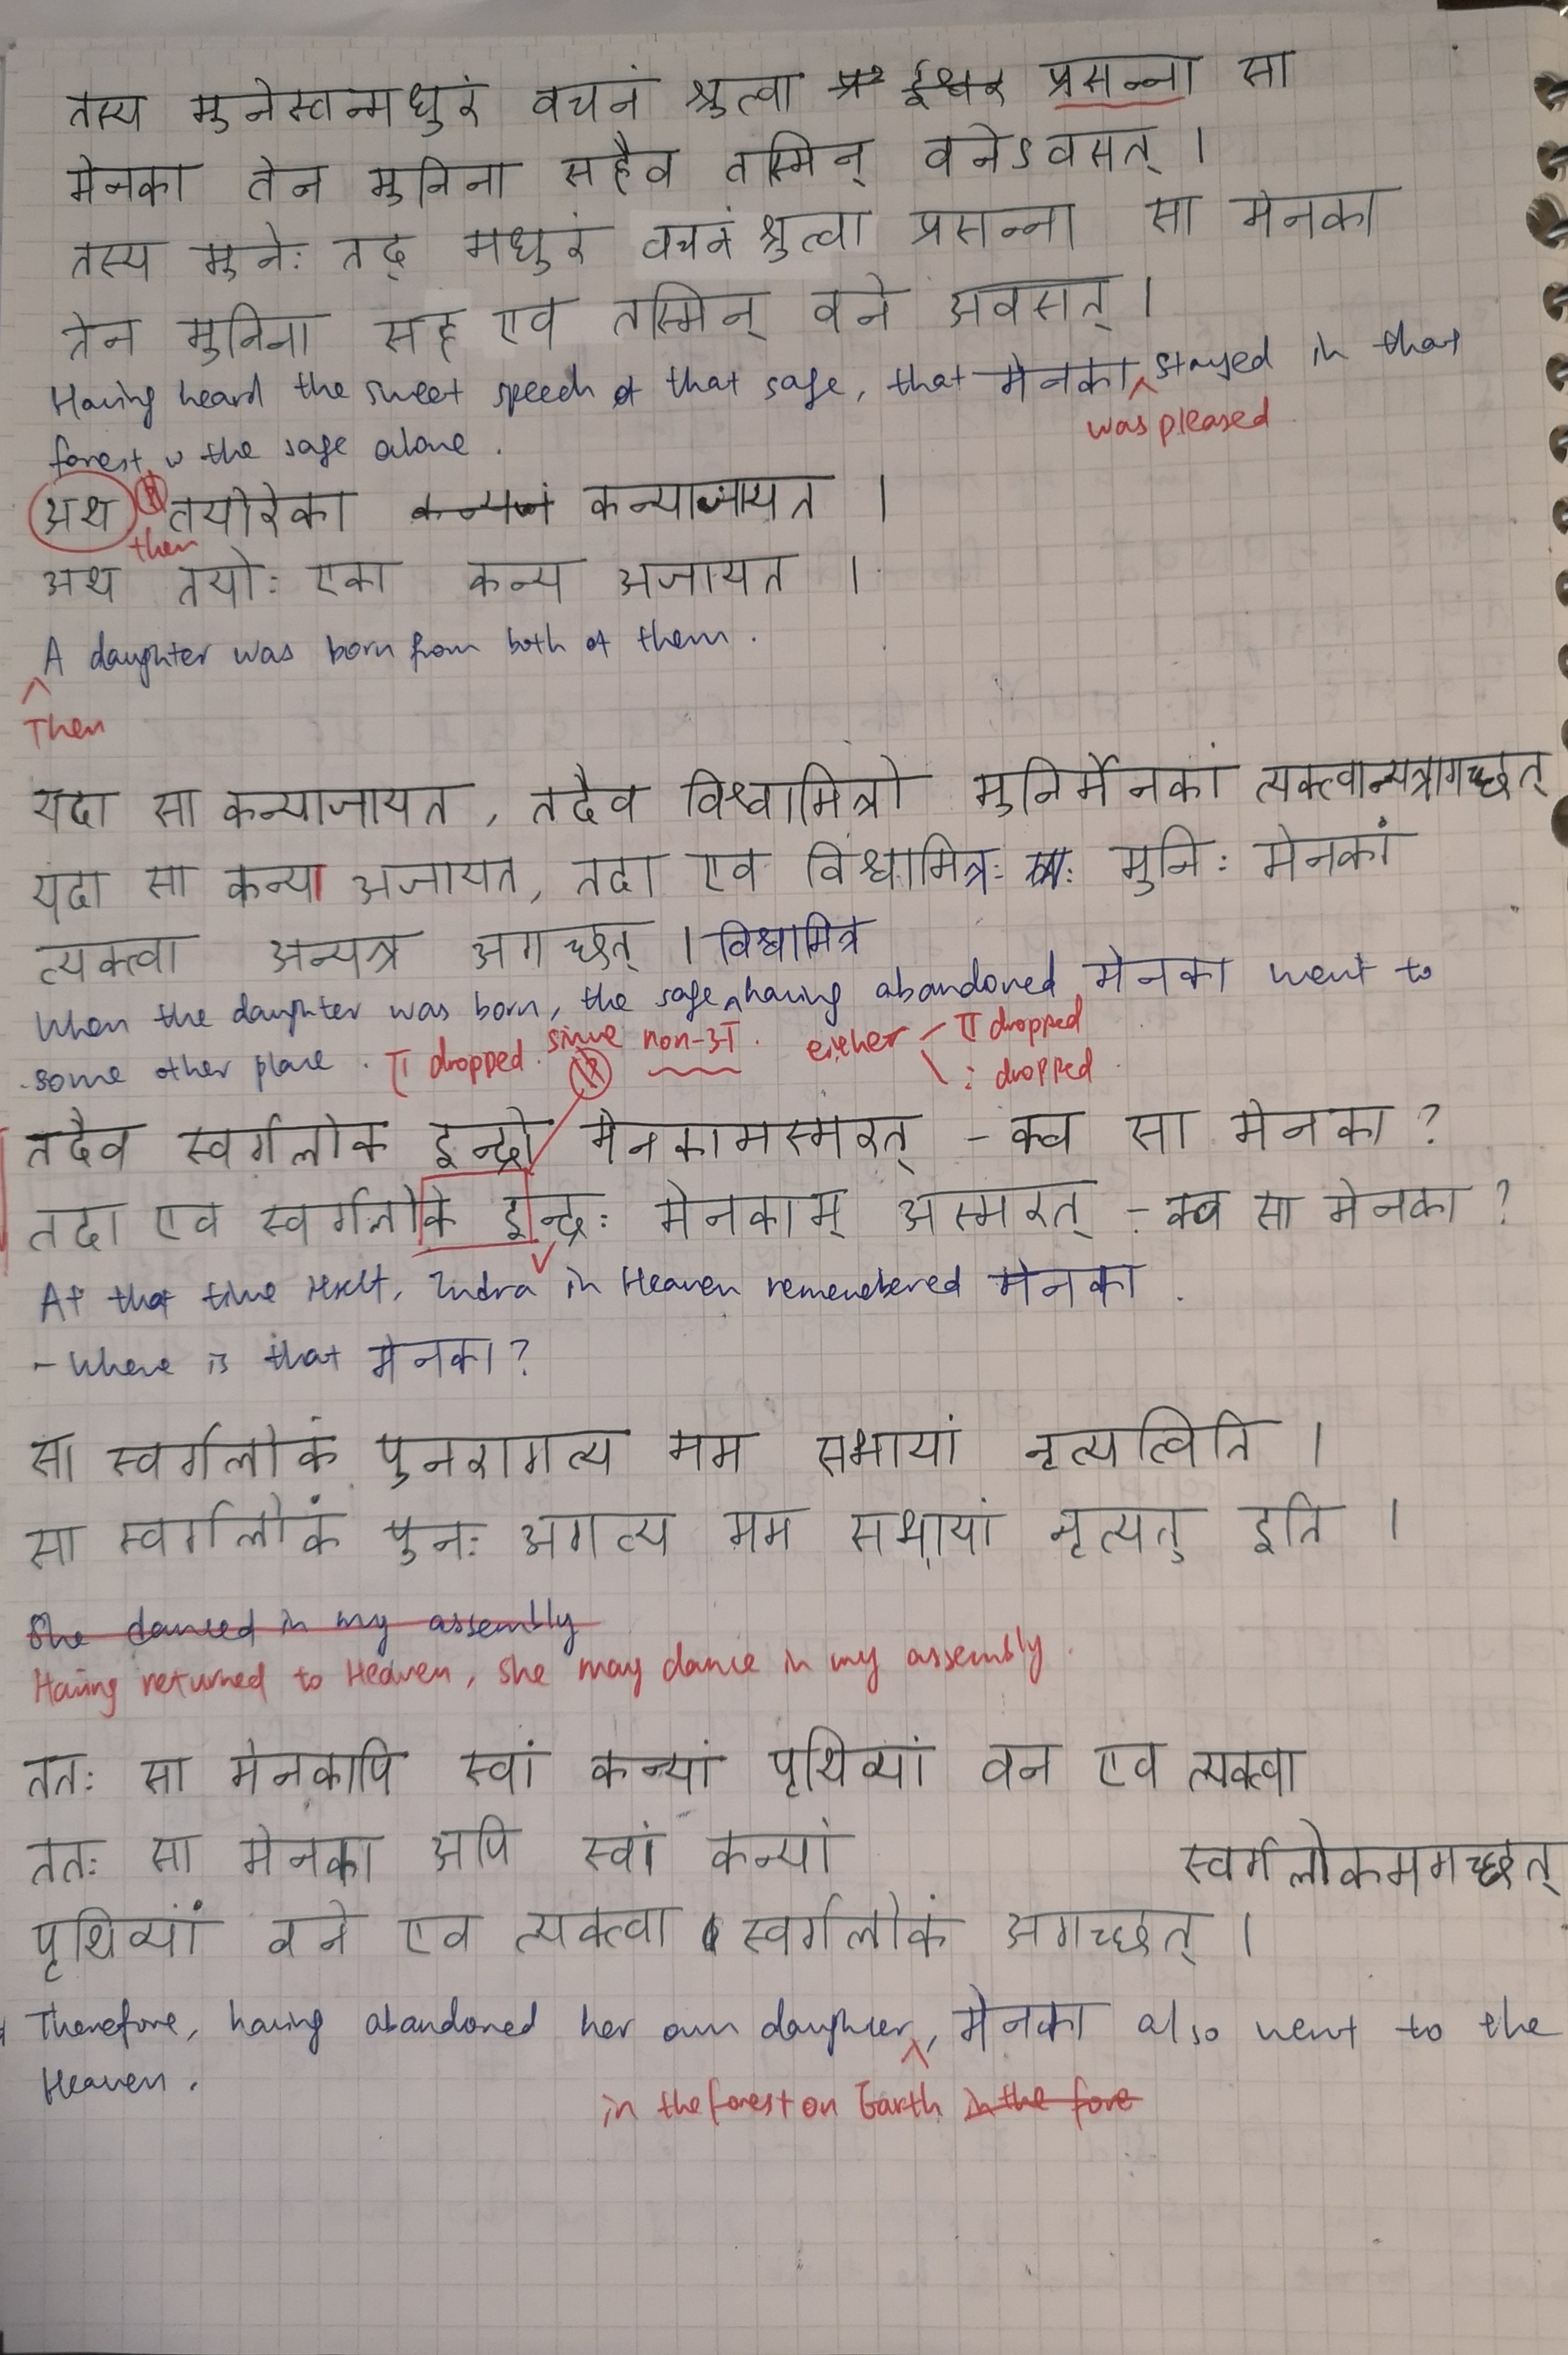 तस्य मुनेस्तन्मधुरं वचनं श्रुत्वा प्र ईश्वर प्रसन्ना सा
मेनका तेन मुनिना सहैव तस्मिन् वनेऽवसत् ।
तस्य मुनेः तद् मधुरं वचनं श्रुत्वा प्रसन्ना सा मेनका
तेन मुनिना सह एव तस्मिन् वने अवसत् ।
Having heard the sweet speech of that sage, that मेनका ^ stayed in that
was pleased
forest w the sage alone.
अथ तयोरेका कन्याजायत ।
then
अथ तयोः एका कन्य अजायत ।
A daughter was born from both of them.
^
Then
यदा सा कन्याजायत, तदैव विश्वामित्रो मुनिर्मेनकां त्यक्त्वान्यत्रागच्छत्
यदा सा कन्या अजायत, तदा एव विश्वामित्रः मुनिः मेनकां
त्यक्त्वा अन्यत्र अगच्छत् । विश्वामित्र
When the daughter was born, the sage ^ having abandoned मेनका went to
some other place. ए dropped. since non-अ. either ए dropped
: dropped
तदैव स्वर्गलोक इन्द्रो मेनकामस्मरत् - क्व सा मेनका ?
तदा एव स्वर्गलोके इन्द्रः मेनकाम् अस्मरत् - क्व सा मेनका ?
At that time itself, Indra in Heaven remembered मेनका.
- Where is that मेनका ?
सा स्वर्गलोकं पुनरागत्य मम सभायां नृत्यत्विति ।
सा स्वर्गलोकं पुनः अगत्य मम सभायां नृत्यतु इति ।
She danced in my assembly
Having returned to Heaven, she may dance in my assembly.
ततः सा मेनकापि स्वां कन्यां पृथिव्यां वन एव त्यक्त्वा
स्वर्गलोकमगच्छत्
ततः सा मेनका अपि स्वां कन्यां
पृथिव्यां वने एव त्यक्त्वा स्वर्गलोकं अगच्छत् ।
Therefore, having abandoned her own daughter ^, मेनका also went to the
Heaven.
in the forest on Earth in the fore